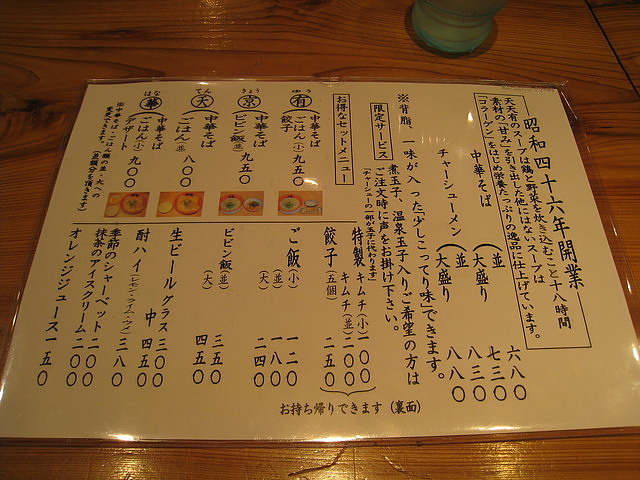 昭和四十六年開業
天天有のスープは鶏と野菜を炊き込むこと十八時間
素材の「甘み」を引き出した他にはないスープは
「コラーゲン」をはじめ栄養たっぷりの逸品に仕上げています。
中華そば（並） 六八〇
（大盛り 七三〇
チャーシューメン（並 八三〇
大盛り 八八〇
※背脂、一味が入った「少しこってり味」できます。
限定サービス
煮玉子、温泉玉子入りご希望の方は
ご注文時に声をお掛け下さい。
「チャーシューの一部が玉子に代わります」
お得なセットメニュー
ゆう
有
中華そば
ごはん(小)
餃子
九五〇
きょう
京
中華そば
ビビン飯(並)
九五〇
てん
天
中華そば
ごはん(並)
八〇〇
はな
華
中華そば
ごはん(小)
デザート
九〇〇
※中華そば・ごはん類の並・大への
変更できます。
(差額分を頂きます)
特製キムチ(小) 一〇〇
キムチ(並) 二〇〇
餃子(五個) 二五〇
お持ち帰りできます（裏面）
ご飯(小) 一二〇
(並) 一八〇
(大) 二四〇
ビビン飯(並) 三五〇
(大) 四五〇
生ビール グラス 三〇〇
中 四五〇
酎ハイ(レモン・ライム・ウメ) 三八〇
季節のシャーベット 二〇〇
抹茶のアイスクリーム 二〇〇
オレンジジュース 一五〇